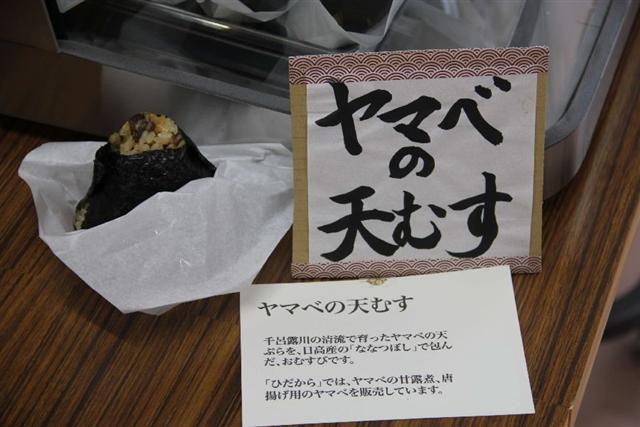 ヤマベ
の
天むす
ヤマベの天むす
千呂露川の清流で育ったヤマベの天
ぷらを、日高産の「ななつぼし」で包ん
だ、おむすびです。
「ひだから」では、ヤマベの甘露煮、唐
揚げ用のヤマベを販売しています。